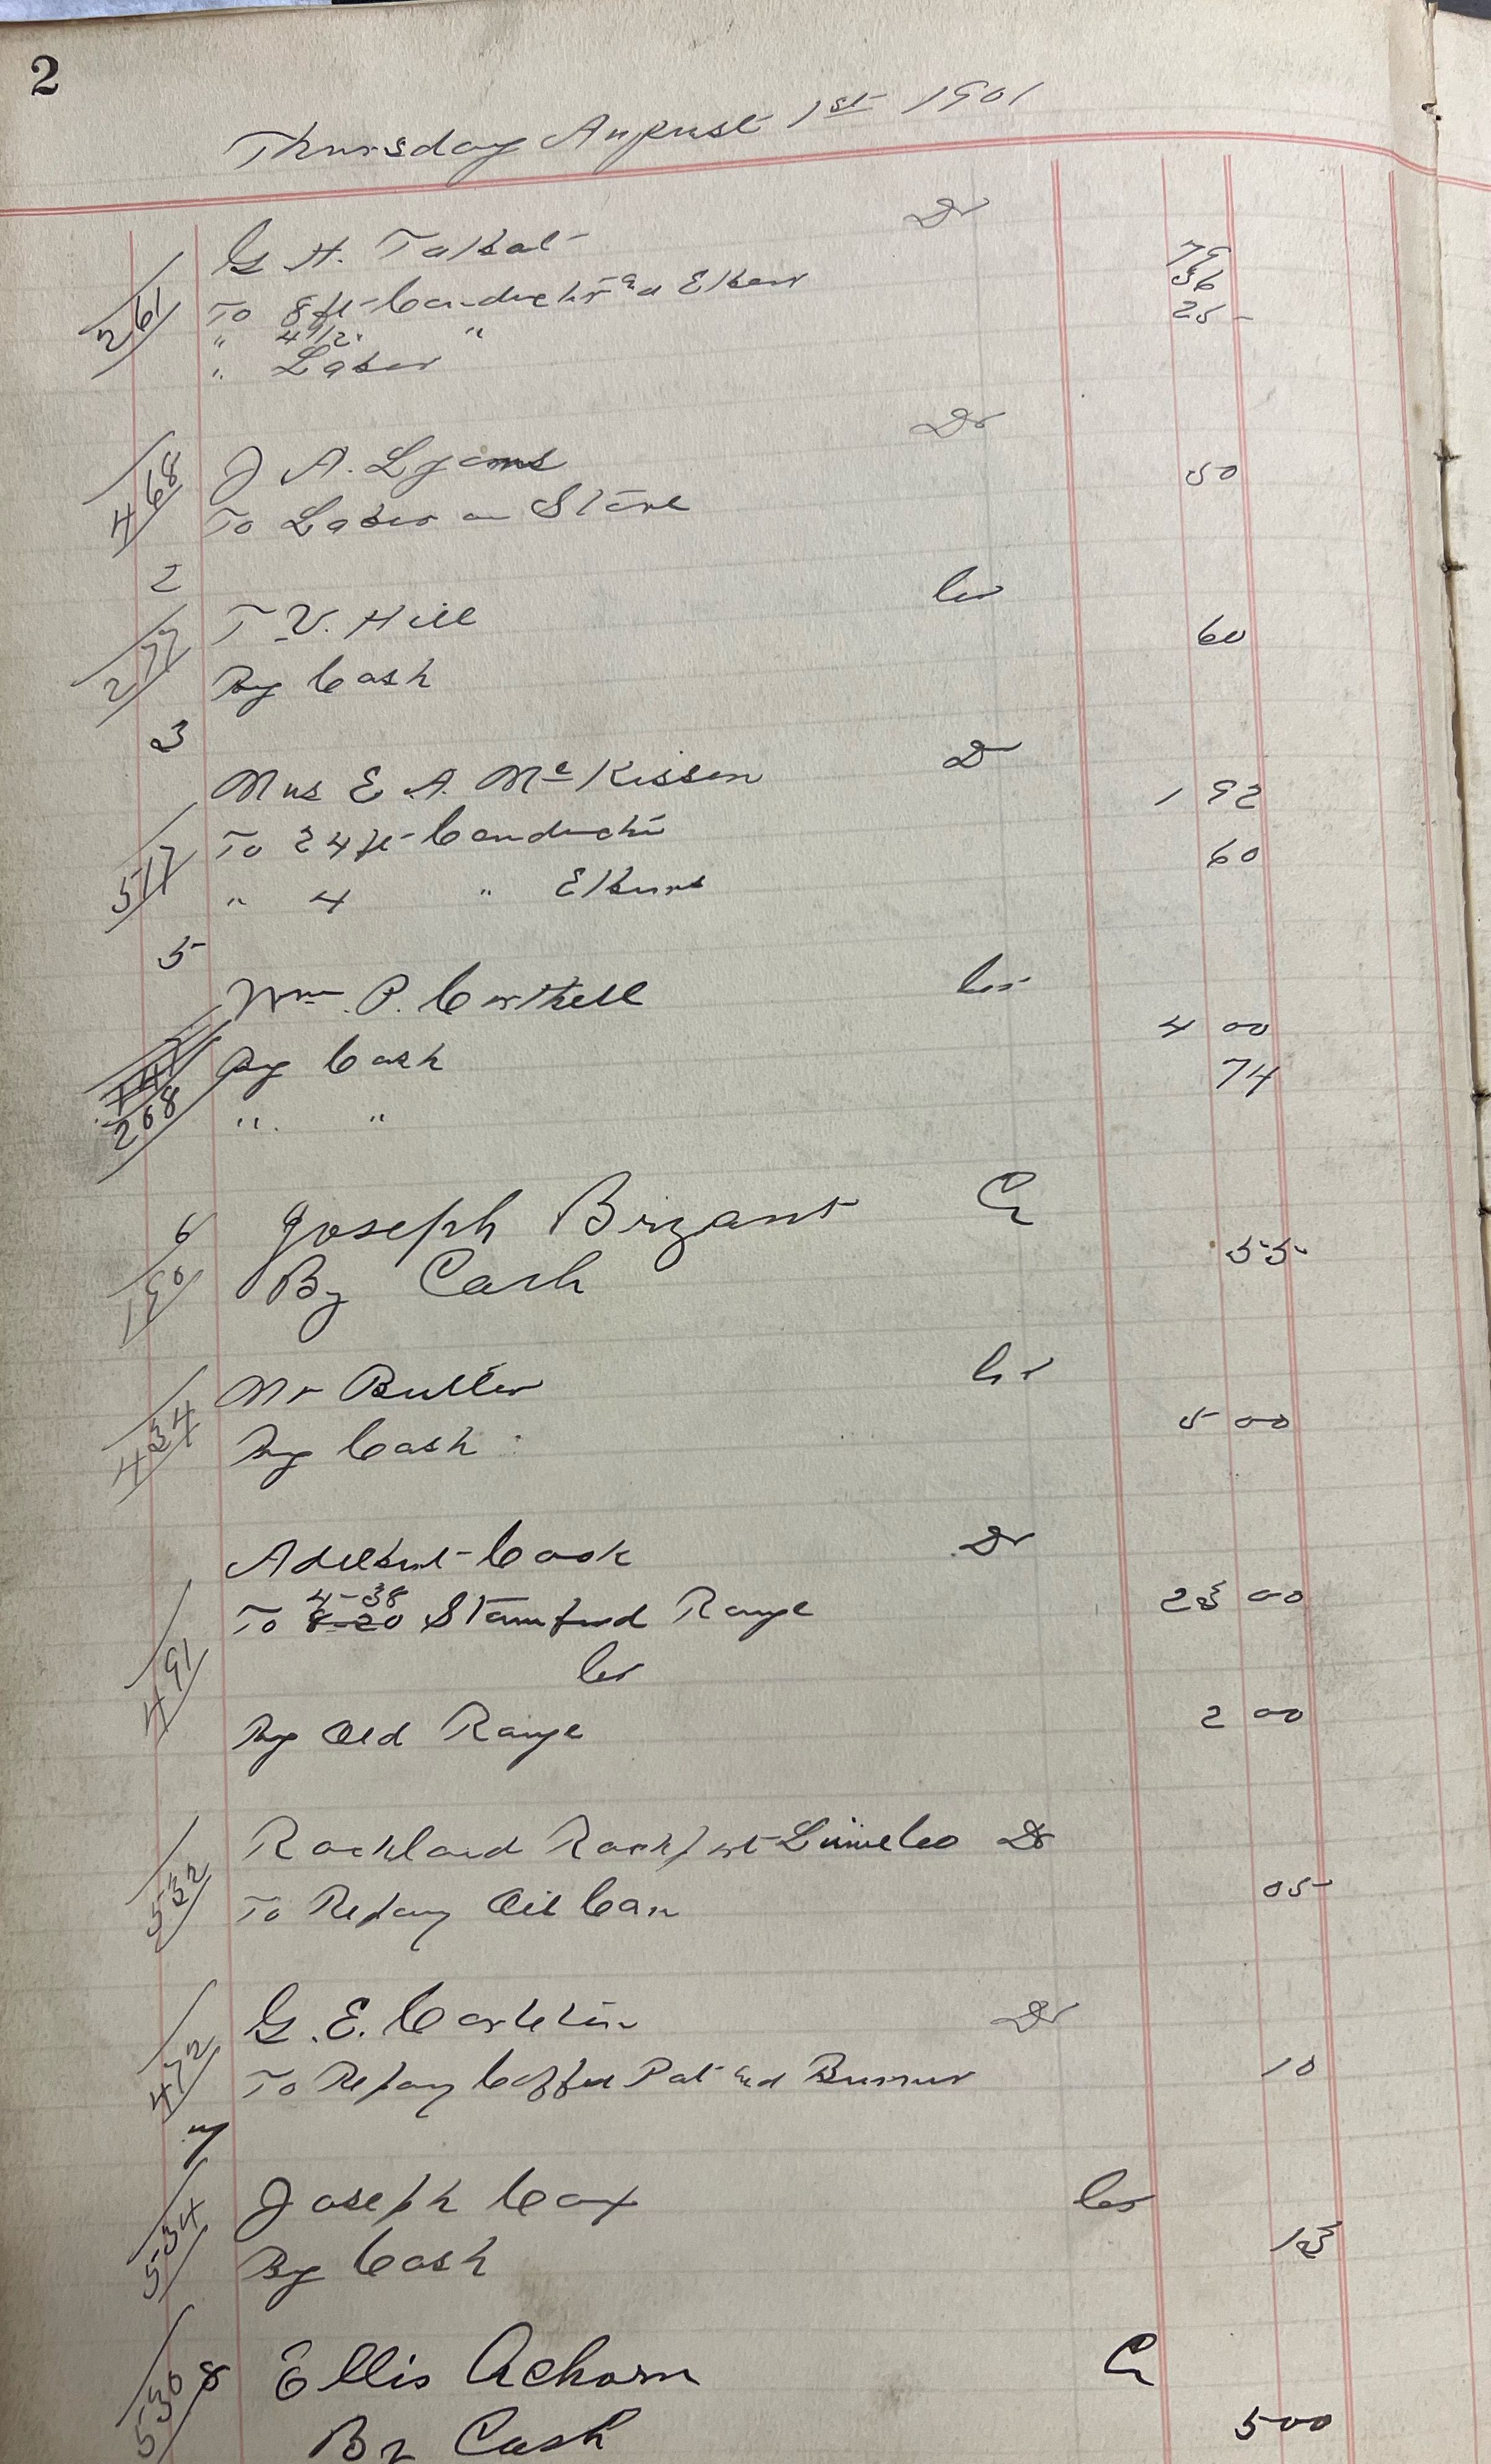 2
Thursday August 1st 1901
G H. Talbot Dr
261 To 8 ft Conductor and Elbow 79
" 4 1/2 " " 36
" Labor 25
J A. Lyons Dr
468 To Labor on Stove 50
2
T V. Hill Cr
277 By Cash 60
3
Mrs E A. McKisson Dr
517 To 24 ft Conductor 1 92
" 4 " Elbows 60
5
Wm P. Corthell Cr
268 By Cash 4 00
" " 74
6 Joseph Bryant Cr
190 By Cash 55
Mr Butler Cr
434 By Cash 5 00
Adelbert Cook Dr
4-38
491 To 8-20 Stamford Range 23 00
Cr
By Old Range 2 00
Rockland Rockport Lime Co Dr
532 To Repay Oil Can 05
G. E. Dr
472 To Repay Coffee Pot and Burner 10
7
Joseph Cox Cr
534 By Cash 13
530 8 Ellis Achorn Cr
By Cash 500